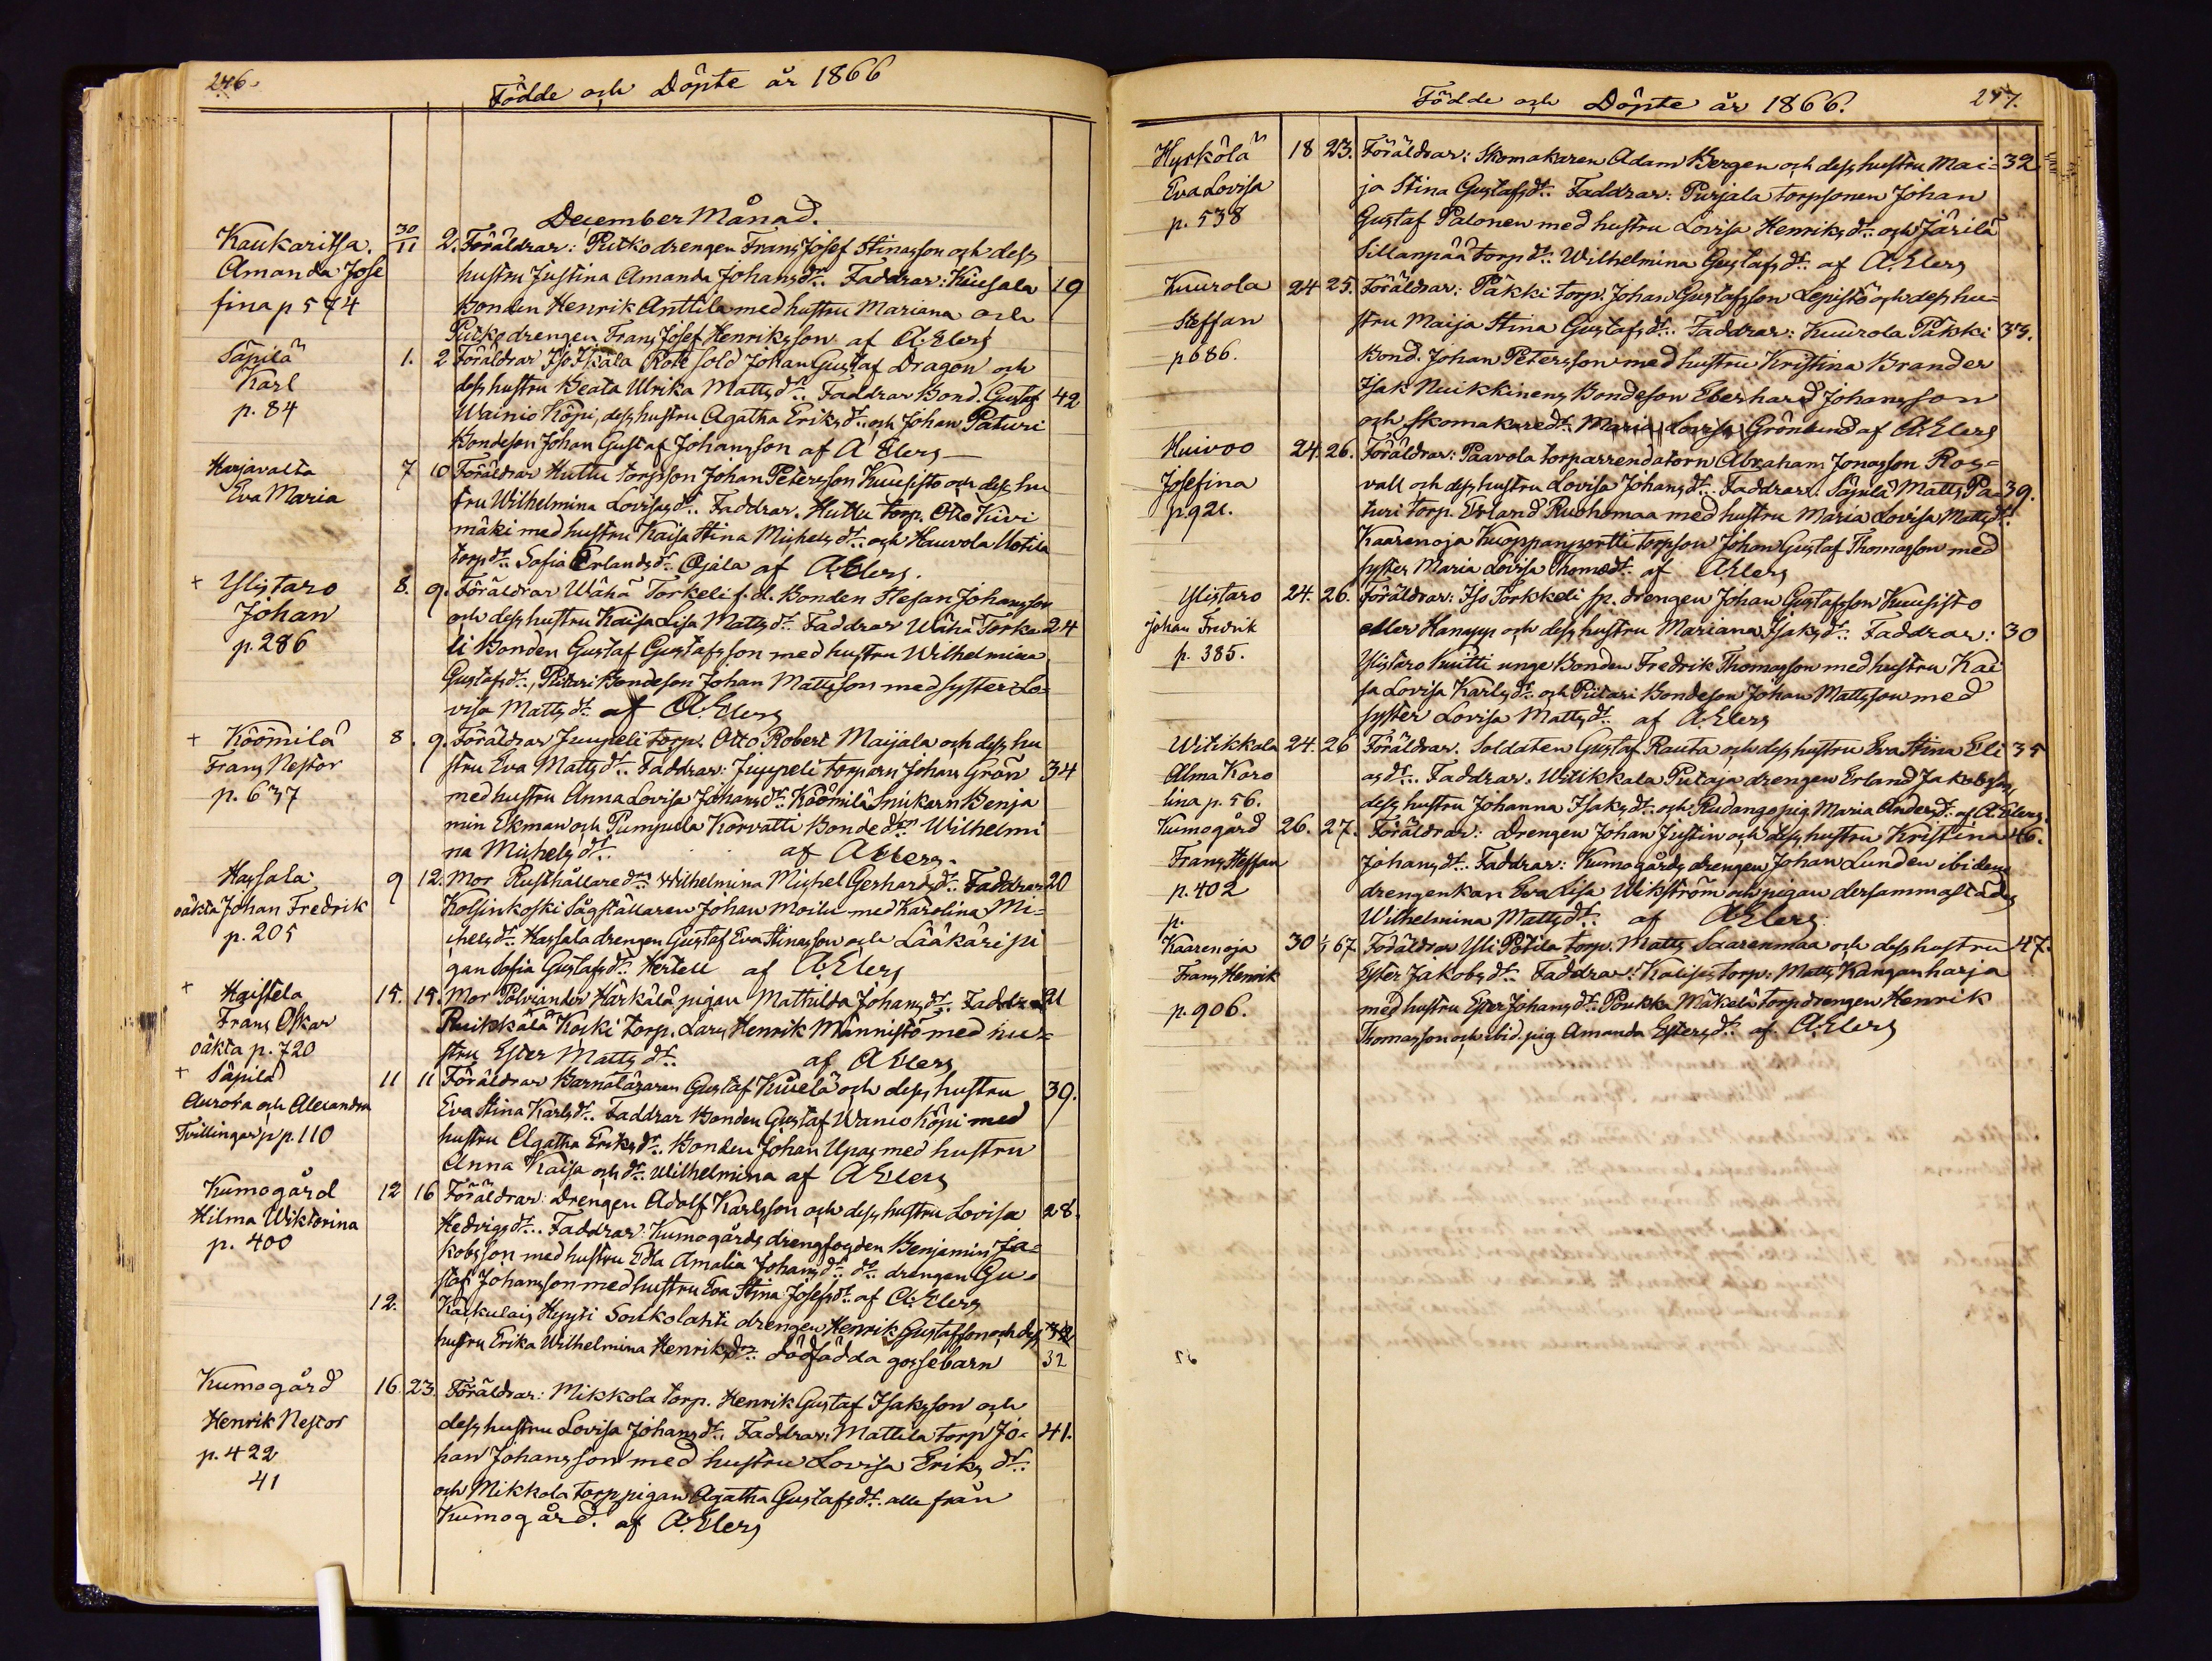 246.
Födde och Döpte år 1866
December Månad.
Kaukaritsa.
Amanda Jose
fina p 574
30/11 2. Föräldrar: Putko drengen Frans Josef Stinasson och dess
hustru Justina Amanda Johansdr. Faddrar: Kiusala 19
Bonden Henrik Anttila med hustru Mariana och
Putko drengen Frans Josef Henriksson af A. Elers
Säpilä
Karl
p. 84
1. 2 Föräldrar Iso Iskala Rote sold Johan Gustaf Dragon och
dess hustru Beata Ulrika Mattsdr. Faddrar Bond. Gustaf 42
Wainio Köpi, dess hustru Agatha Eriksdr. och Johan Paturi
Bondeson Johan Gustaf Johansson af A Elers
Harjavalta
Eva Maria
7 10 Föräldrar Huttu torpsson Johan Petersson Kuusisto och dess hu
stru Wilhelmina Lovisasdr. Faddrar. Huttu torp. Otto Kivi
mäki med hustru Kaisa Stina Michelsdr. och Hauvola Uotila
torpdr. Sofia Erlandsdr. Ojala af A. Elers.
+ Ylistaro
Johan
p. 286
8. 9. Föräldrar Wähä Torkeli f.d. Bonden Stefan Johansson
och dess hustru Kaisa Lisa Mattsdr. Faddrar Wähä Torke 24
li Bonden Gustaf Gustafsson med hustru Wilhelmina
Gustafsdr., Piitari Bondeson Johan Mattsson med syster Lo=
visa Mattsdr. af A. Elers
+ Köömilä
Frans Nestor
p. 637
8. 9. Föräldrar Juupeli torp. Otto Robert Maijala och dess hu
stru Eva Mattsdr. Faddrar: Juppeli torparn Johan Grön 34
med hustru Anna Lovisa Johansdr. Köömilä Snickarn Benja
min Ekman och Pumpula Korvatti Bondedr. Wilhelmi
na Michelsdr. af A Elers.
Hassala
oäkta Johan Fredrik
p. 205
9 12. Mor Rusthållaredr. Wilhelmina Michel Gerhardsdr. Faddrar 20
Kolsinkoski Sågställaren Johan Moilu med Karolina Mi=
chelsdr. Hassala drengen Gustaf Eva Stinasson och Lääkäri pi
gan Sofia Gustafsdr. Hertell af A. Elers
+ Haistela
Frans Oskar
oäkta p. 720
15. 15. Mor Polviander Härkälä pigan Mathilda Johansdr. Faddrar 21
Ruikkälä Koski torp. Lars Henrik Männistö med hu=
stru Ester Mattsdr. af A Elers
+ Säpilä
Aurora och Alexandra
Tvillingar p p. 110
11 11 Föräldrar Barnaläraren Gustaf Kuuelä och dess hustru 39.
Eva Stina Karlsdr. Faddrar Bonden Gustaf Wanio Köpi med
hustru Agatha Eriksdr. Bonden Johan Upas med hustru
Anna Kaisa och dr. Wilhelmina af A Elers
Kumogård
Hilma Wiktorina
p. 400
12 16 Föräldrar: Drengen Adolf Karlsson och dess hustru Lovisa 28.
Hedvigsdr. Faddrar: Kumogårds drengfogden Benjamin Ja=
kobsson med hustru Edla Amalia Johansdr. do drengen Gu=
staf Johansson med hustru Eva Stina Josefsdr. af A. Elers
12. Kaskulais Hyyti Soukolahti drengen Henrik Gustafsson och dess
hustru Erika Wilhelmina Henriksdr. dödfödda gossebarn 32
Kumogård
Henrik Nestor
p. 422
41
16. 23. Föräldrar: Mikkola torp. Henrik Gustaf Isaksson och
dess hustru Lovisa Johansdr. Faddrar: Mattila torp Jo= 41.
han Johansson med hustru Lovisa Eriksdr.
och Mikkola torp pigan Agatha Gustafsdr. alla från
Kumogård. af A. Elers
Födde och Döpte år 1866. 247.
Hyrkölä
Eva Lovisa
p. 538
18 23. Föräldrar: Skomakaren Adam Bergen och dess hustru Mai= 32
ja Stina Gustafsdr. Faddrar: Purjala torpsonen Johan
Gustaf Palonen med hustru Lovisa Henriksdr. och Järilä
Sillanpää torpdr. Wilhelmina Gustafsdr. af A. Elers
Kuurola
Steffan
p 686.
24 25. Föräldrar: Päkki torp. Johan Gustafsson Lepistö och dess hu=
stru Maija Stina Gustafsdr. Faddrar: Kuurola Päkki 33.
Bond. Johan Petersson med hustru Kristina Brander
Isak Nuikkinens Bondeson Eberhard Johansson
och skomakaredr. Maria Lovisa Grönlund af A. Elers
Huivoo
Josefina
p. 921.
24. 26. Föräldrar: Paavola torparrendatorn Abraham Jonasson Ros=
vall och dess hustru Lovisa Johansdr. Faddrar: Säpilä Matts Pa= 39.
turi torp. Erland Ruohomaa med hustru Maria Lovisa Mattsdr.
Kaarenoja Kuoppanportti torpson Johan Gustaf Thomasson med
syster Maria Lovisa Thomædr. af A. Elers
Ylistaro
Johan Fredrik
p. 385.
24. 26. Föräldrar: Iso Torkkeli sp. drengen Johan Gustafsson Kuusisto
eller Hanapp och dess hustru Mariana Isaksdr. Faddrar: 30
Ylistaro Knitti unge Bonden Fredrik Thomasson med hustru Kai
sa Lovisa Karlsdr. och Piitari Bondeson Johan Mattsson med
syster Lovisa Mattsdr. af A. Elers
Witikkala
Alma Karo
lina p. 56.
24. 26 Föräldrar. Soldaten Gustaf Rauta och dess hustru Eva Stina Eli 35
asdr. Faddrar. Witikkala Putaja drengen Erland Jakobsson,
dess hustru Johanna Isaksdr. och Rudango pig. Maria Andersdr. af A. Elers.
Kumogård
Frans Steffan
p. 402
p.
26. 27. Föräldrar: Drengen Johan Justin och dess hustru Kristina 46.
Johansdr. Faddrar: Kumogårds drengen Johan Lunden ibidem
drengenkan Eva Lisa Wikström och pigan dersammastädes
Wilhelmina Mattsdr. af A Elers
Kaarenoja
Frans Henrik
p. 906.
30 1/1 67 Föräldrar Yli Potila torp. Matts Saarenmaa och dess hustru 47.
Ester Jakobsdr. Faddrar: Kaliss torp: Matts Kanganharja
med hustru Ester Johansdr. Poukka Mäkelä torpdrengen Henrik
Thomasson och ibid. pig. Amanda Estersdr. af A. Elers